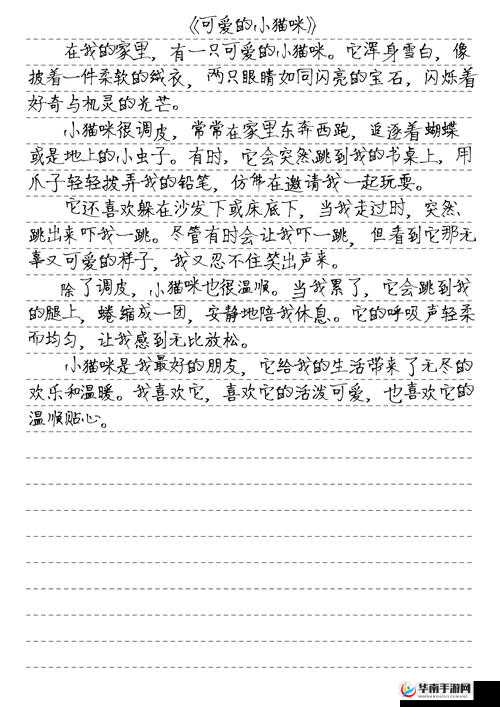 《可爱的小猫咪》
在我的家里，有一只可爱的小猫咪。它浑身雪白，像
披着一件柔软的绒衣，两只眼睛如同闪亮的宝石，闪烁着
好奇与机灵的光芒。
小猫咪很调皮，常常在家里东奔西跑，追逐着蝴蝶
或是地上的小虫子。有时，它会突然跳到我的书桌上，用
爪子轻轻拨弄我的铅笔，仿佛在邀请我一起玩耍。
它还喜欢躲在沙发下或床底下，当我走过时，突然
跳出来吓我一跳。尽管有时会让我吓一跳，但看到它那无
辜又可爱的样子，我又忍不住笑出声来。
除了调皮，小猫咪也很温顺。当我累了，它会跳到我
的腿上，蜷缩成一团，安静地陪我休息。它的呼吸声轻柔
而均匀，让我感到无比放松。
小猫咪是我最好的朋友，它给我的生活带来了无尽的
欢乐和温暖。我喜欢它，喜欢它的活泼可爱，也喜欢它的
温顺贴心。
华南手游网